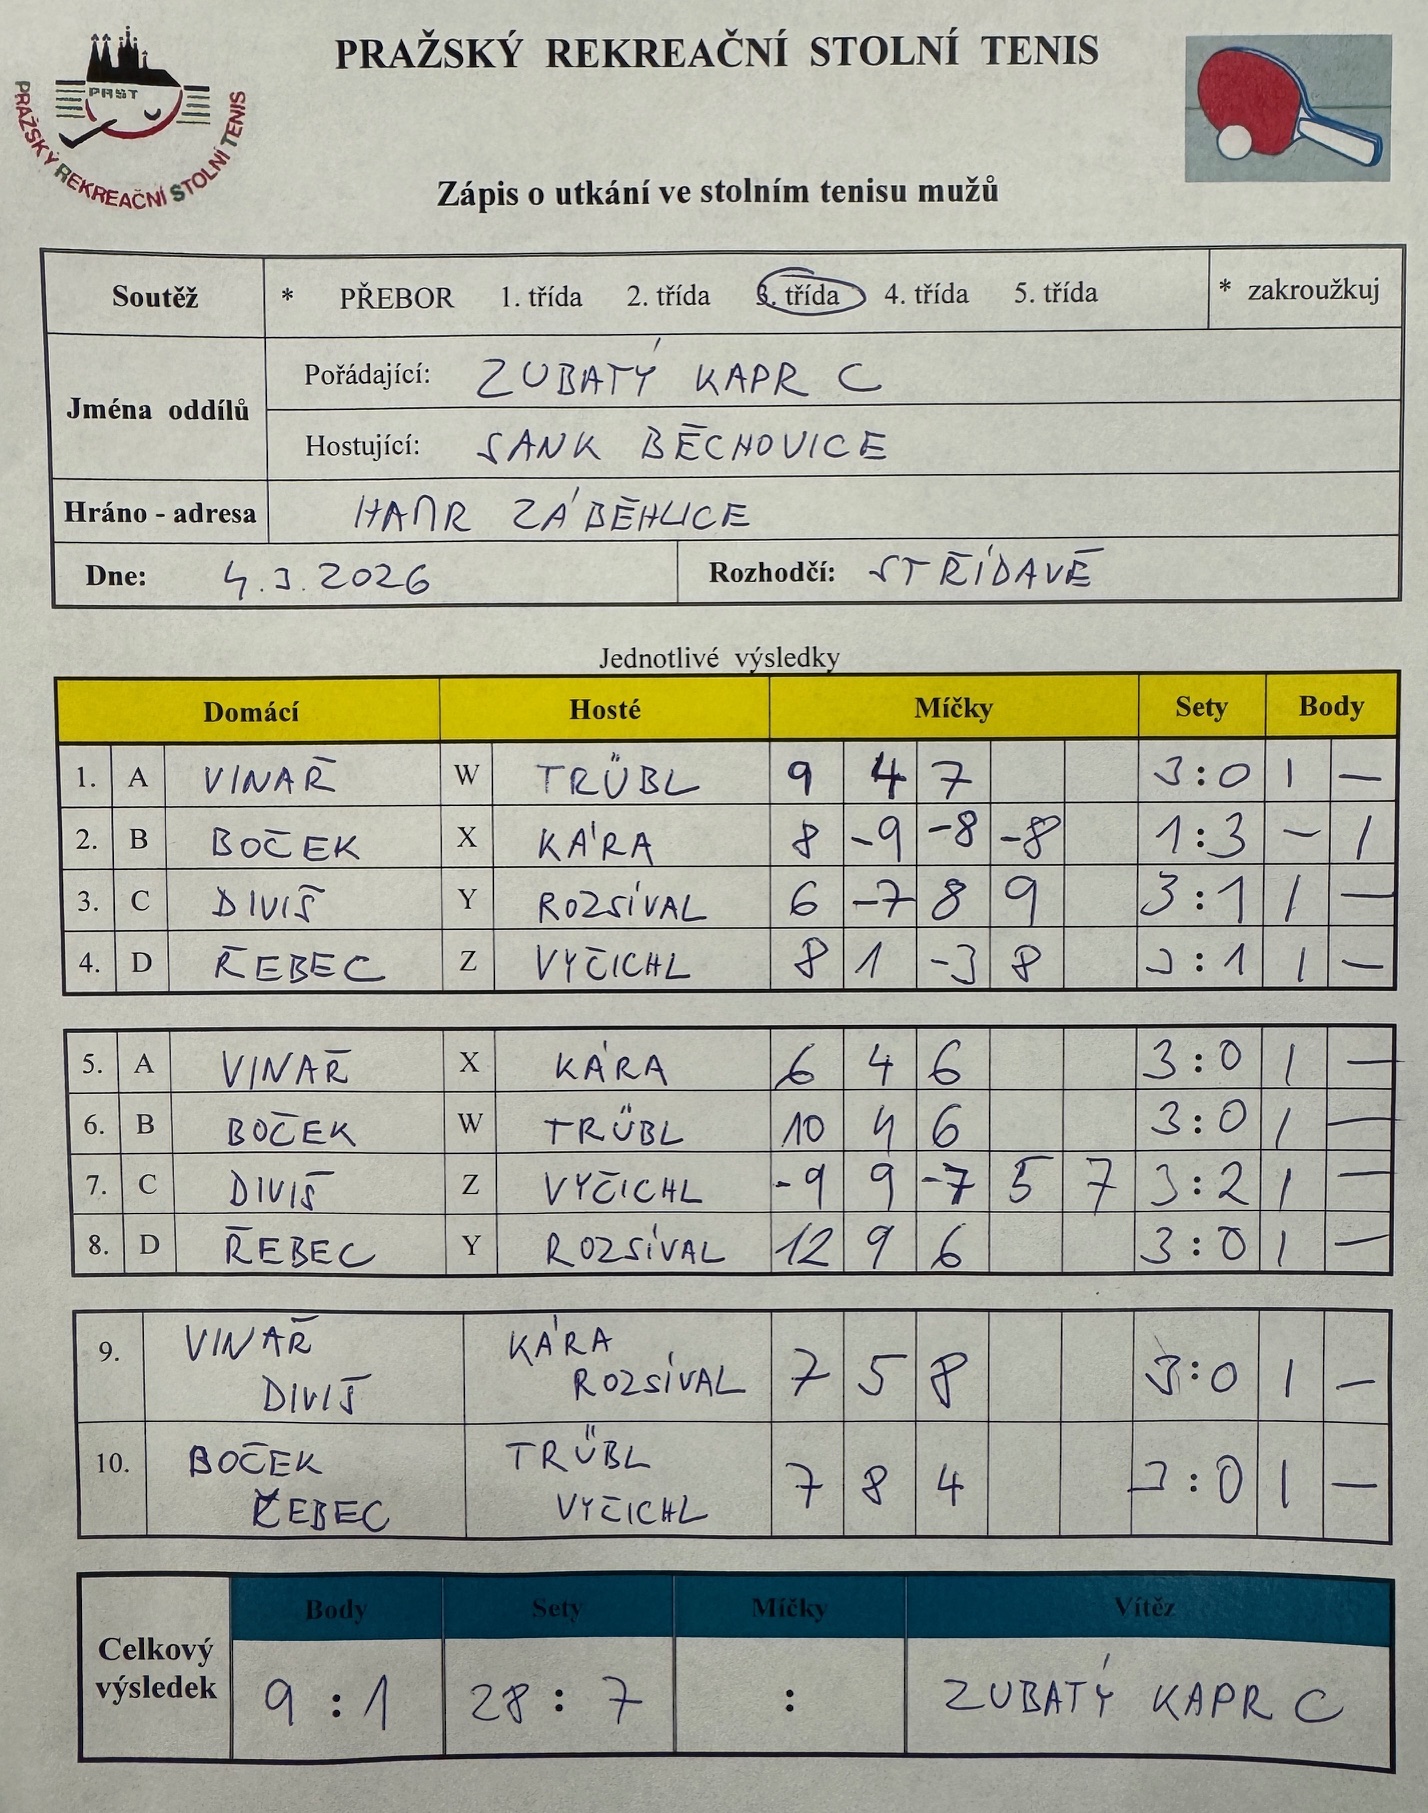 PRAŽSKÝ REKREAČNÍ STOLNÍ TENIS
PRST
PRAŽSKÝ REKREAČNÍ STOLNÍ TENIS
Zápis o utkání ve stolním tenisu mužů
Soutěž * PŘEBOR 1. třída 2. třída 3. třída 4. třída 5. třída * zakroužkuj
Jména oddílů
Pořádající: ZUBATÝ KAPR C
Hostující: SANK BĚCHOVICE
Hráno - adresa HAMR ZÁBĚHLICE
Dne: 4.3.2026 Rozhodčí: STŘÍDAVĚ
Jednotlivé výsledky
Domácí Hosté Míčky Sety Body
1. A VINAŘ W TRÜBL 9 4 7 3:0 1 –
2. B BOČEK X KÁRA 8 -9 -8 -8 1:3 – 1
3. C DIVIŠ Y ROZSÍVAL 6 -7 8 9 3:1 1 –
4. D ŘEBEC Z VYČICHL 8 1 -3 8 3:1 1 –
5. A VINAŘ X KÁRA 6 4 6 3:0 1 –
6. B BOČEK W TRÜBL 10 4 6 3:0 1 –
7. C DIVIŠ Z VYČICHL -9 9 -7 5 7 3:2 1 –
8. D ŘEBEC Y ROZSÍVAL 12 9 6 3:0 1 –
9. VINAŘ KÁRA
DIVIŠ ROZSÍVAL 7 5 8 3:0 1 –
10. BOČEK TRÜBL
ŘEBEC VYČICHL 7 8 4 3:0 1 –
Celkový výsledek
Body Sety Míčky Vítěz
9 : 1 28 : 7 : ZUBATÝ KAPR C